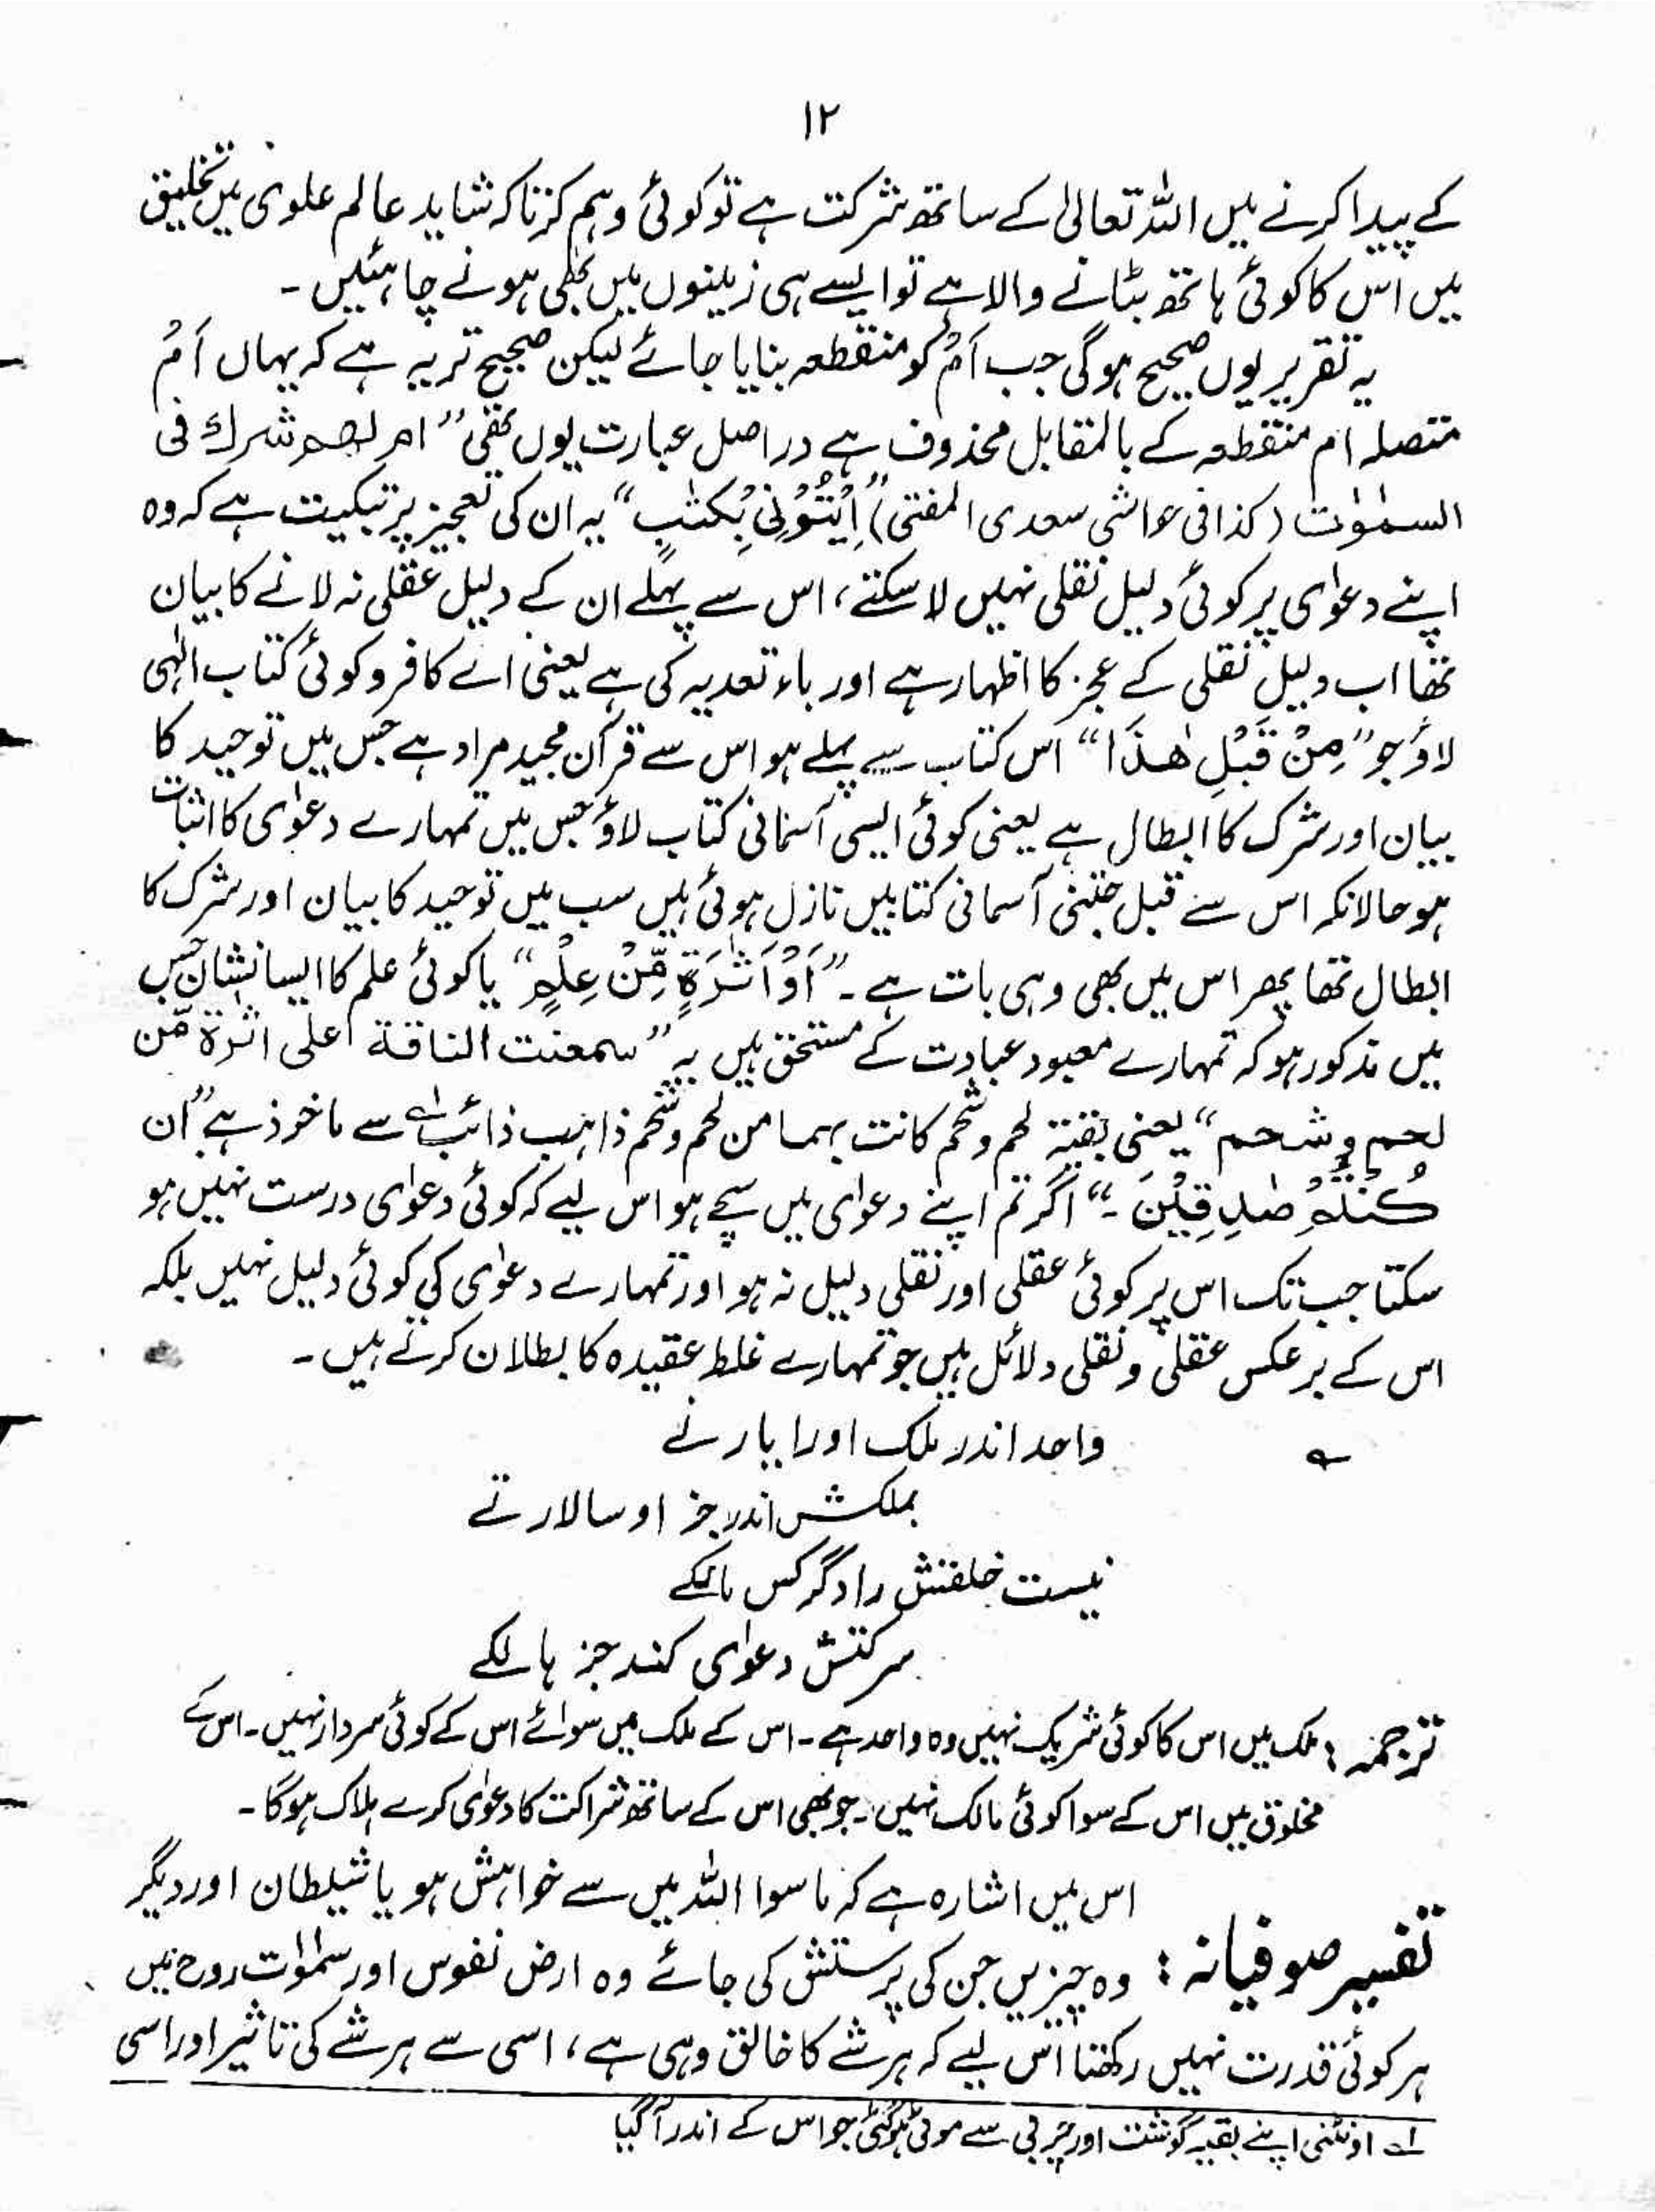 ۱۲
کے پیدا کرنے میں اللہ تعالیٰ کے ساتھ شرکت ہے تو کوئی وہم کرتا کہ شاید عالم علوی میں تخلیق
میں اس کا کوئی ہاتھ بٹانے والا ہے تو ایسے ہی زمینوں میں بھی ہونے چاہئیں ۔
یہ تقریر یوں صحیح ہوگی جب اَمْ کو منقطعہ بنایا جائے لیکن صحیح تر یہ ہے کہ یہاں اَمْ
متصلہ ام منقطعہ کے بالمقابل محذوف ہے دراصل عبارت یوں تھی ”ام لھم شرك فی
السمٰوٰت (کذا فی حواشی سعدی المفتی) ”اِیْتُوْنِیْ بِکِتٰبٍ“ یہ ان کی تعجیز پر تبکیت ہے کہ وہ
اپنے دعوٰی پر کوئی دلیل نقلی نہیں لا سکتے، اس سے پہلے ان کے دلیل عقلی نہ لانے کا بیان
تھا اب دلیل نقلی کے عجز کا اظہار ہے اور باء تعدیہ کی ہے یعنی اے کافرو کوئی کتاب الٰہی
لاؤ جو ”مِنْ قَبْلِ ھٰذَا“ اس کتاب سے پہلے ہو اس سے قرآن مجید مراد ہے جس میں توحید کا
بیان اور شرک کا ابطال ہے یعنی کوئی ایسی آسمانی کتاب لاؤ جس میں تمہارے دعوٰی کا اثبات
ہو حالانکہ اس سے قبل جتنی آسمانی کتابیں نازل ہوئی ہیں سب میں توحید کا بیان اور شرک کا
ابطال تھا پھر اس میں بھی وہی بات ہے ۔ ”اَوْ اَثٰرَۃٍ مِّنْ عِلْمٍ“ یا کوئی علم کا ایسا نشان جس
میں مذکور ہو کہ تمہارے معبود عبادت کے مستحق ہیں یہ ”سمعنت الناقة اعلی اثرۃ مّن
لحم وشحم“ یعنی بقیۃ لحم وشحم کانت بہما من لحم وشحم ذاہب ذائب لہ سے ماخوذ ہے ”ان
کُنْتُمْ صٰدِقِیْنَ ۔“ اگر تم اپنے دعوٰی میں سچے ہو اس لیے کہ کوئی دعوٰی درست نہیں ہو
سکتا جب تک اس پر کوئی عقلی اور نقلی دلیل نہ ہو اور تمہارے دعوٰی کی کوئی دلیل نہیں بلکہ
اس کے برعکس عقلی و نقلی دلائل ہیں جو تمہارے غلط عقیدہ کا بطلان کرتے ہیں ۔
؎ واحد اندر ملک اورا یار نے
بملکش اندر جز او سالار نے
نیست خلقتش را دگر کس مالکے
سرکتش دعوٰی کند جز ہالکے
ترجمہ : ملک میں اس کا کوئی شریک نہیں وہ واحد ہے ۔ اس کے ملک میں سوائے اس کے کوئی سردار نہیں ۔ اس کے
مخلوق میں اس کے سوا کوئی مالک نہیں ۔ جو بھی اس کے ساتھ شراکت کا دعوٰی کرے ہلاک ہوگا ۔
اس میں اشارہ ہے کہ ماسوا اللہ میں سے خواہش ہو یا شیطان اور دیگر
تفسیر صوفیانہ : وہ چیزیں جن کی پرستش کی جائے وہ ارض نفوس اور سمٰوٰت روح میں
ہر کوئی قدرت نہیں رکھتا اس لیے کہ ہر شے کا خالق وہی ہے، اسی سے ہر شے کی تاثیر اور اسی
لہ اونٹنی اپنے بقیہ گوشت اور چربی سے موٹی ہوگئی جو اس کے اندر آگیا